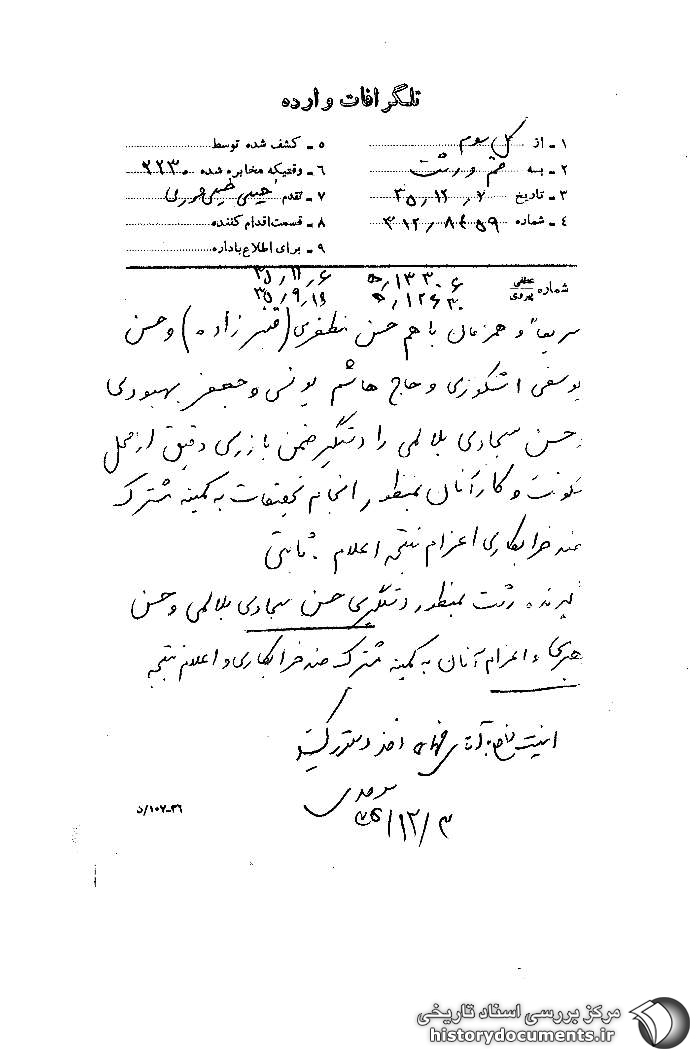 تلگرافات وارده
۱ ـ از کل سوم
۲ ـ به قم و رشت
۳ ـ تاریخ ۳۵٫۱۲٫۷
۴ ـ شماره ۳۱۲٫۸۴۵۹
۵ ـ کشف شده توسط
۶ ـ وقتیکه مخابره شده ۲۲۳۰
۷ ـ تقدم خیلی خیلی فوری
۸ ـ قسمت اقدام کننده
۹ ـ برای اطلاع باداره
شماره عطفی پیروی ۵٫۱۳۳۰۶ ۳۵٫۱۱٫۶
۵٫۱۲۶۳۰ ۳۵٫۹٫۱۶
سریعاً و همزمان با هم حسن مظفری (قنبرزاده) و حسن
یوسفی اشکوری و حاج هاشم یونسی و جعفر بهبودی
حسن سجادی بلالمی را دستگیر ضمن بازرسی دقیق از محل
سکونت و کار آنان بمنظور انجام تحقیقات به کمیته مشترک
ضد خرابکاری اعزام نتیجه اعلام . ثابتی
گیرنده رشت بمنظور دستگیری حسن سجادی بلالمی و حسن
و اعزام آنان به کمیته مشترک ضد خرابکاری و اعلام نتیجه
امنیت آقای اخذ دستور گیتسد
۳۵/۱۲/۳
۳۶-۱۰۷/د
مرکز بررسی اسناد تاریخی
historydocuments.ir